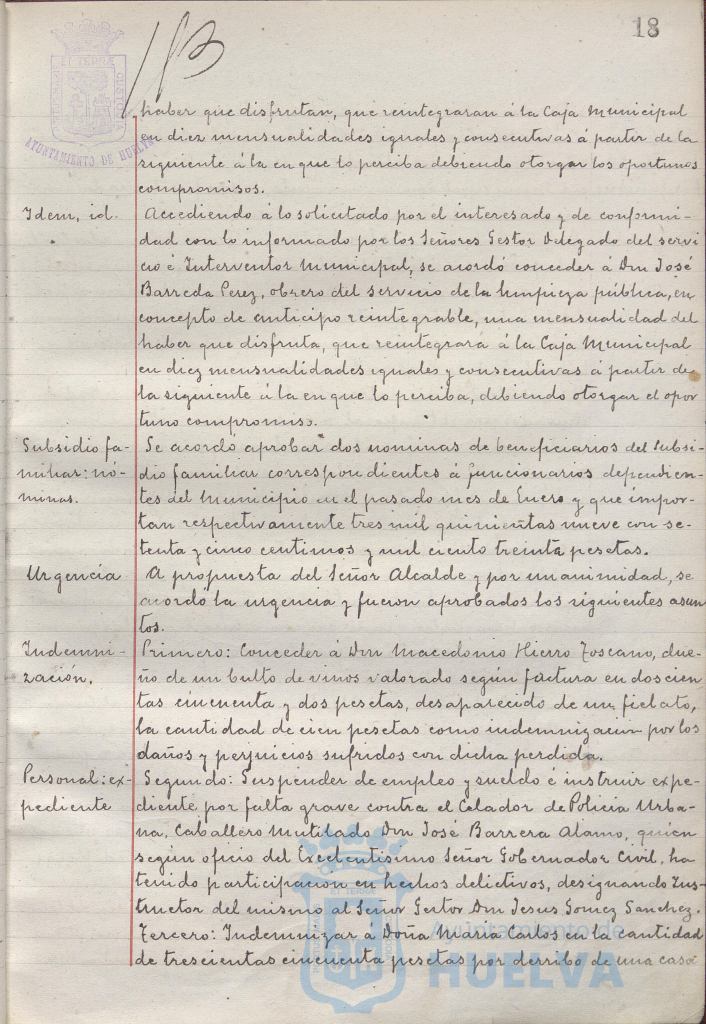 18
haber que disfrutan, que reintegraran á la Caja Municipal
en diez mensualidades iguales y consecutivas á partir de la
siguiente á la en que lo perciba debiendo otorgar los oportunos
compromisos.
AYUNTAMIENTO DE HUELVA
Idem, id.
Accediendo á lo solicitado por el interesado y de conformi-
dad con lo informado por los Señores Gestor Delegado del servi
cio é Interventor Municipal, se acordó conceder á Don José
Barreda Perez, obrero del servicio de la limpieza pública, en
concepto de anticipo reintegrable, una mensualidad del
haber que disfruta, que reintegrará á la Caja Municipal
en diez mensualidades iguales y consecutivas á partir de
la siguiente á la en que lo perciba, debiendo otorgar el opor
tuno compromiso.
Subsidio fa-
miliar: nó-
minas.
Se acordó aprobar dos nominas de beneficiarios del subsi-
dio familiar correspondientes á funcionarios dependien-
tes del Municipio en el pasado mes de Enero y que impor-
tan respectivamente tres mil quinientas nueve con se-
tenta y cinco centimos y mil ciento treinta pesetas.
Urgencia
A propuesta del Señor Alcalde y por unanimidad, se
acordó la urgencia y fueron aprobados los siguientes asun
tos.
Indemni-
zación.
Primero: Conceder á Don Macedonio Hierro Toscano, due-
ño de un bulto de vinos valorado según factura en doscien
tas cincuenta y dos pesetas, desaparecido de un fielato,
la cantidad de cien pesetas como indemnizacion por los
daños y perjuicios sufridos con dicha perdida.
Personal: ex-
pediente
Segundo: Suspender de empleo y sueldo é instruir expe-
diente por falta grave contra el Celador de Policia Urba-
na, Caballero Mutilado Don José Barrera Alamo, quien
según oficio del Excelentisimo Señor Gobernador Civil, ha
tenido participación en hechos delictivos, designando Ins-
tructor del mismo al Señor Gestor Don Jesus Gomez Sanchez.
Tercero: Indemnizar á Doña Maria Carlos en la cantidad
de trescientas cincuenta pesetas por derribo de una casa
Ayuntamiento de
HUELVA